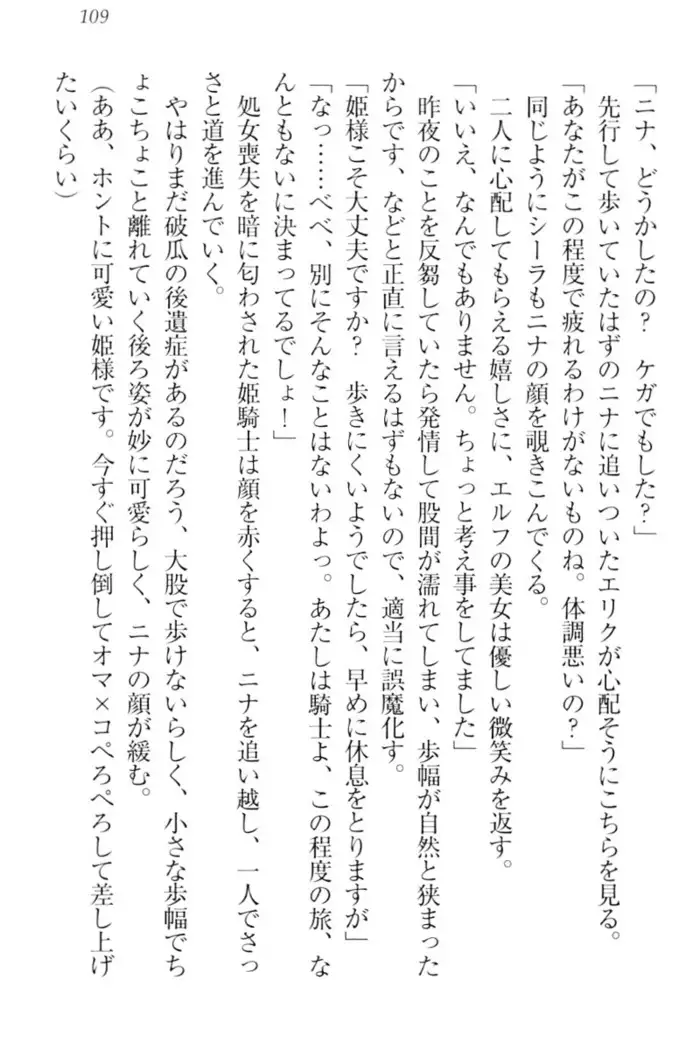 109
「ニナ、どうかしたの？　ケガでもした？」
　先行して歩いていたはずのニナに追いついたエリクが心配そうにこちらを見る。
「あなたがこの程度で疲れるわけがないものね。体調悪いの？」
　同じようにシーラもニナの顔を覗きこんでくる。
　二人に心配してもらえる嬉しさに、エルフの美女は優しい微笑みを返す。
「いいえ、なんでもありません。ちょっと考え事をしてました」
　昨夜のことを反芻していたら発情して股間が濡れてしまい、歩幅が自然と狭まった
からです、などと正直に言えるはずもないので、適当に誤魔化す。
「姫様こそ大丈夫ですか？　歩きにくいようでしたら、早めに休息をとりますが」
「なっ……べべ、別にそんなことはないわよっ。あたしは騎士よ、この程度の旅、な
んともないに決まってるでしょ！」
　処女喪失を暗に匂わされた姫騎士は顔を赤くすると、ニナを追い越し、一人でさっ
さと道を進んでいく。
　やはりまだ破瓜の後遺症があるのだろう、大股で歩けないらしく、小さな歩幅でち
ょこちょこと離れていく後ろ姿が妙に可愛らしく、ニナの顔が緩む。
（ああ、ホントに可愛い姫様です。今すぐ押し倒してオマ×コぺろぺろして差し上げ
たいくらい）